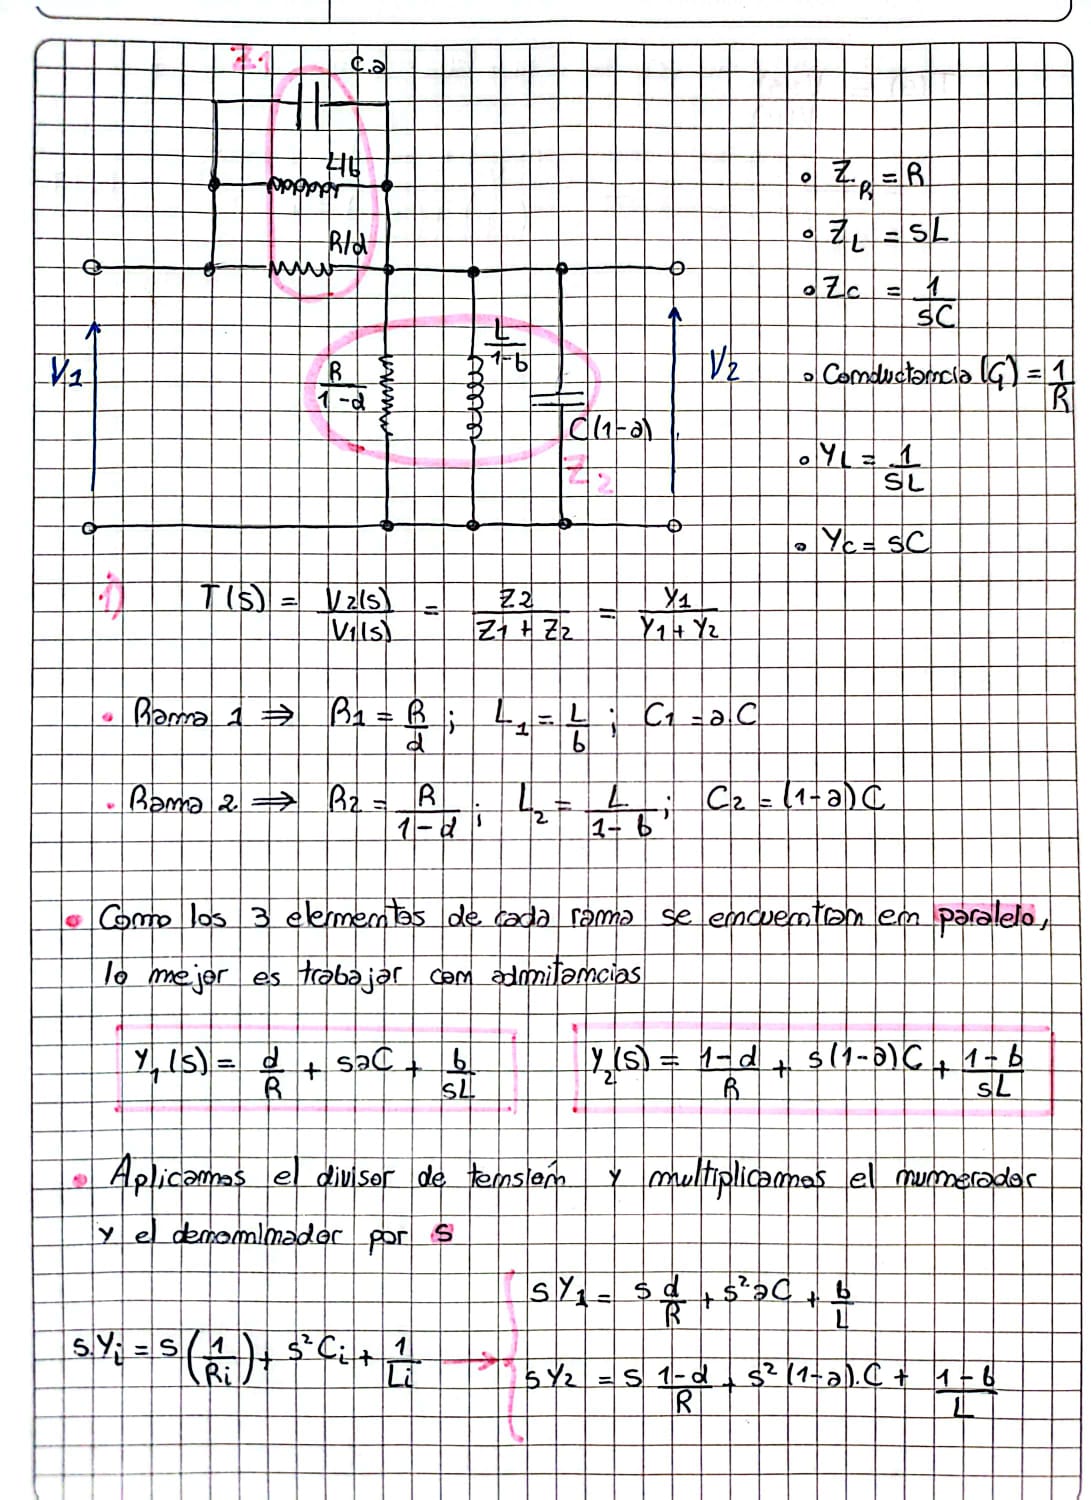 Z1
C.a
L/b
R/d
V1
R/(1-d)
L/(1-b)
C(1-a)
Z2
V2
∘ Z_R = R
∘ Z_L = sL
∘ Z_C = 1/(sC)
∘ Conductancia (G) = 1/R
∘ Y_L = 1/(sL)
∘ Y_C = sC
1) T(s) = V2(s)/V1(s) = Z2/(Z1 + Z2) = Y1/(Y1 + Y2)
• Rama 1 ⇒ R1 = R/d ; L1 = L/b ; C1 = a.C
• Rama 2 ⇒ R2 = R/(1-d) ; L2 = L/(1-b) ; C2 = (1-a)C
• Como los 3 elementos de cada rama se encuentran en paralelo,
lo mejor es trabajar con admitancias
Y1(s) = d/R + saC + b/(sL)
Y2(s) = (1-d)/R + s(1-a)C + (1-b)/(sL)
• Aplicamos el divisor de tensión y multiplicamos el numerador
y el denominador por s
s.Yi = s(1/Ri) + s²Ci + 1/Li →
sY1 = s d/R + s²aC + b/L
sY2 = s (1-d)/R + s²(1-a).C + (1-b)/L